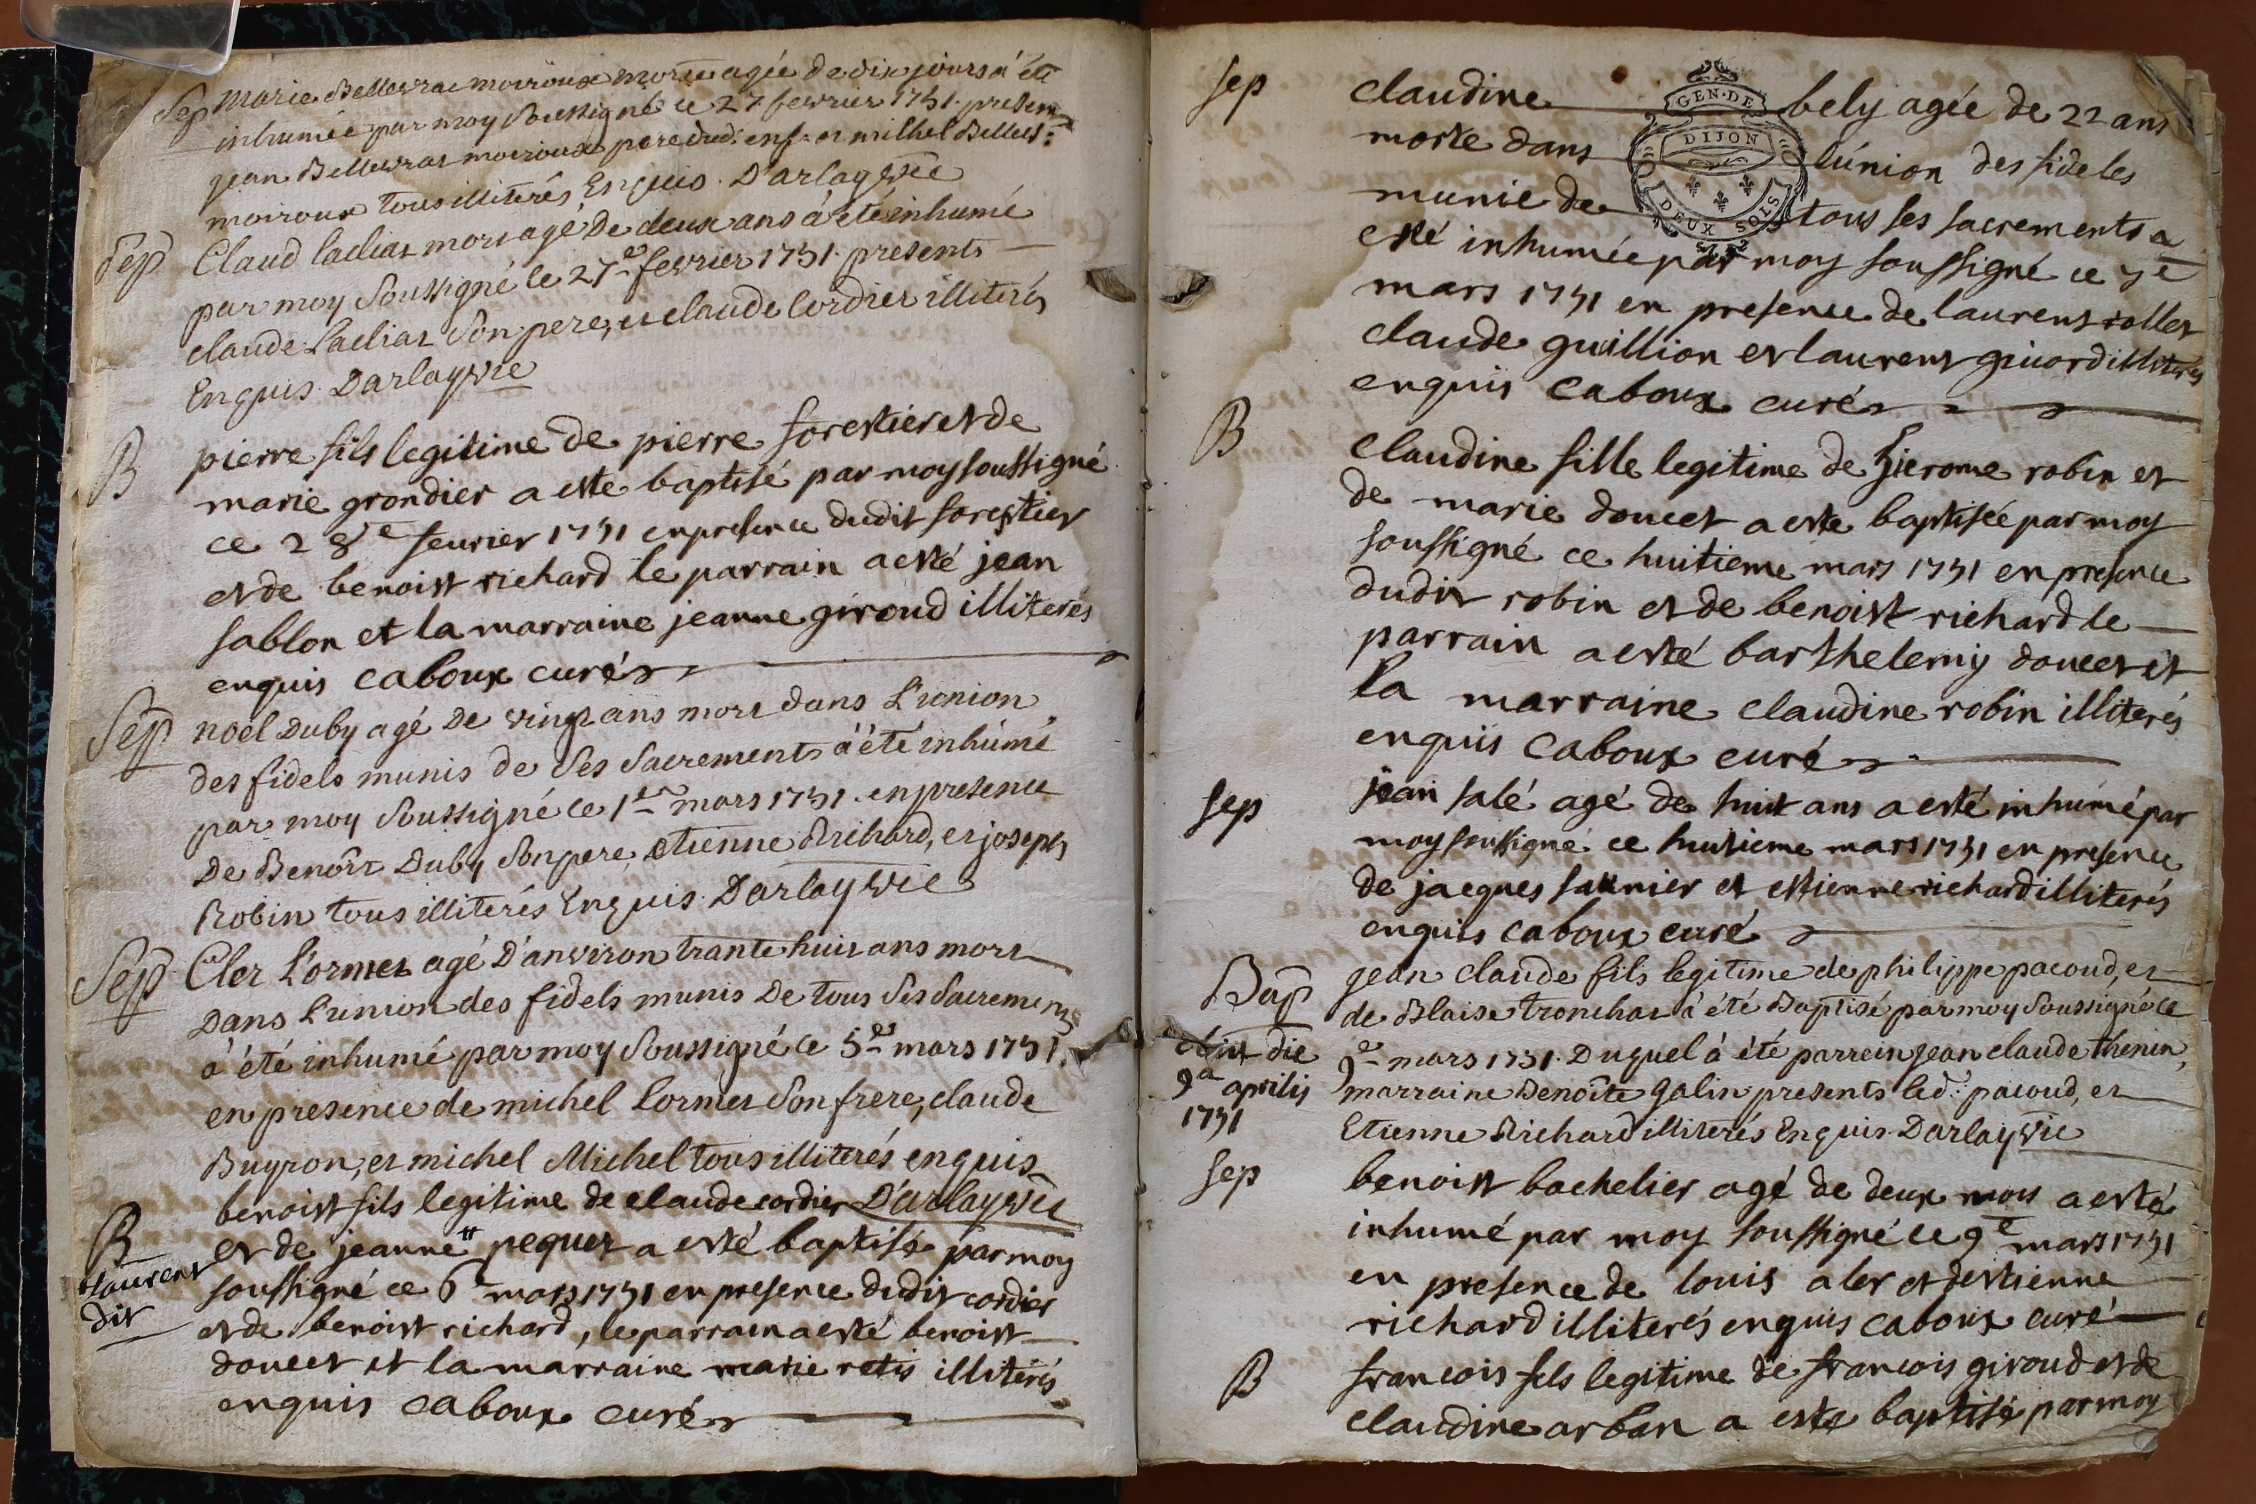 Sep Marie Bellevrat moiroux morte agée de dix jours a été
inhumée par moy Soussigné ce 27 fevrier 1731. presen
jean Bellevrat moiroux pere dud: enf: et milhel Bellev:
moiroux tous illiterés Enquis. D'arlay vic
Sep Claud lacliat mort agé De deux ans à été inhumé
par moy Soussigné le 27e fevrier 1731. presents
claude Lacliat Son pere, et claude Cordier illiterés
Enquis Darlay vic
B pierre fils legitime de pierre forestier et de
marie grondier a este baptisé par moy soussigné
ce 28e feurier 1731 en presence dudit forestier
et de benoist richard le parrain a esté jean
sablon et la marraine jeanne giroud illiterés
enquis caboux curé
Sep noel Duby agé De vingt ans mort dans L'union
des fidels munis de Ses Sacrements à été inhúmé
par moy Soussigné ce 1er mars 1731. en presence
De Benoît Duby Son pere, etienne Richard, et joseph
Robin tous illiterés Enquis. Darlay vic
Sep Cler Lormet agé D'anviron trante huit ans mort
Dans L'union des fidels munis De tous Ses Sacrements
à été inhumé par moy Soussigné ce 5e mars 1731.
en presence de michel Lormet Son frere, claude
Buyron, et michel Michel tous illiterés enquis
D'arlay vic
B benoist fils legitime de claude cordier
et de jeanne # pequet a esté baptisé par moy
# laurent
dit
soussigné ce 6e mars 1731 en presence dudit cordier
et de benoist richard, le parrain a esté benoist
doucet et la marraine marie retis illiterés
enquis caboux curé
sep claudine bely agée de 22 ans
morte dans lúnion des fideles
munie de tous ses sacrements a
esté inhumée par moy soussigné ce 7e
mars 1731 en presence de laurent rollet
claude guillion et laurent giuord illiterés
enquis caboux curé
GEN·DE
DIJON
DEUX SOLS
B claudine fille legitime de hierome robin et
de marie doucet a esté baptisée par moy
soussigné ce huitieme mars 1731 en presence
dudit robin et de benoist richard le
parrain a esté barthelemy doucet et
la marraine claudine robin illiterés
enquis caboux curé
sep jean salé agé de huit ans a esté inhúmé par
moy soussigné ce huitieme mars 1731 en presence
de jacques saunier et estienne richard illiterés
enquis caboux curé
Bap jean claude fils legitime de philippe pacoud, et
de Blaise tronchat à été Baptisé par moy Soussigné ce
9e mars 1731. Duquel à été parrein jean claude thenin,
marraine Benoîte galin presents led: pacoud, et
Etienne Richard illiterés Enquis. Darlay vic
obiit die
9a aprilis
1731
sep benoist bachelier agé de deux mois a esté
inhumé par moy soussigné ce 9e mars 1731
en presence de louis aler et destienne
richard illiterés enquis caboux curé
B francois fils legitime de francois giroud et de
claudine arban a esté baptisé par moy